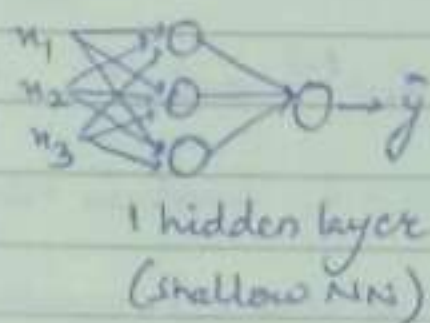 x1
x2
x3
ŷ
1 hidden layer
(shallow NN)